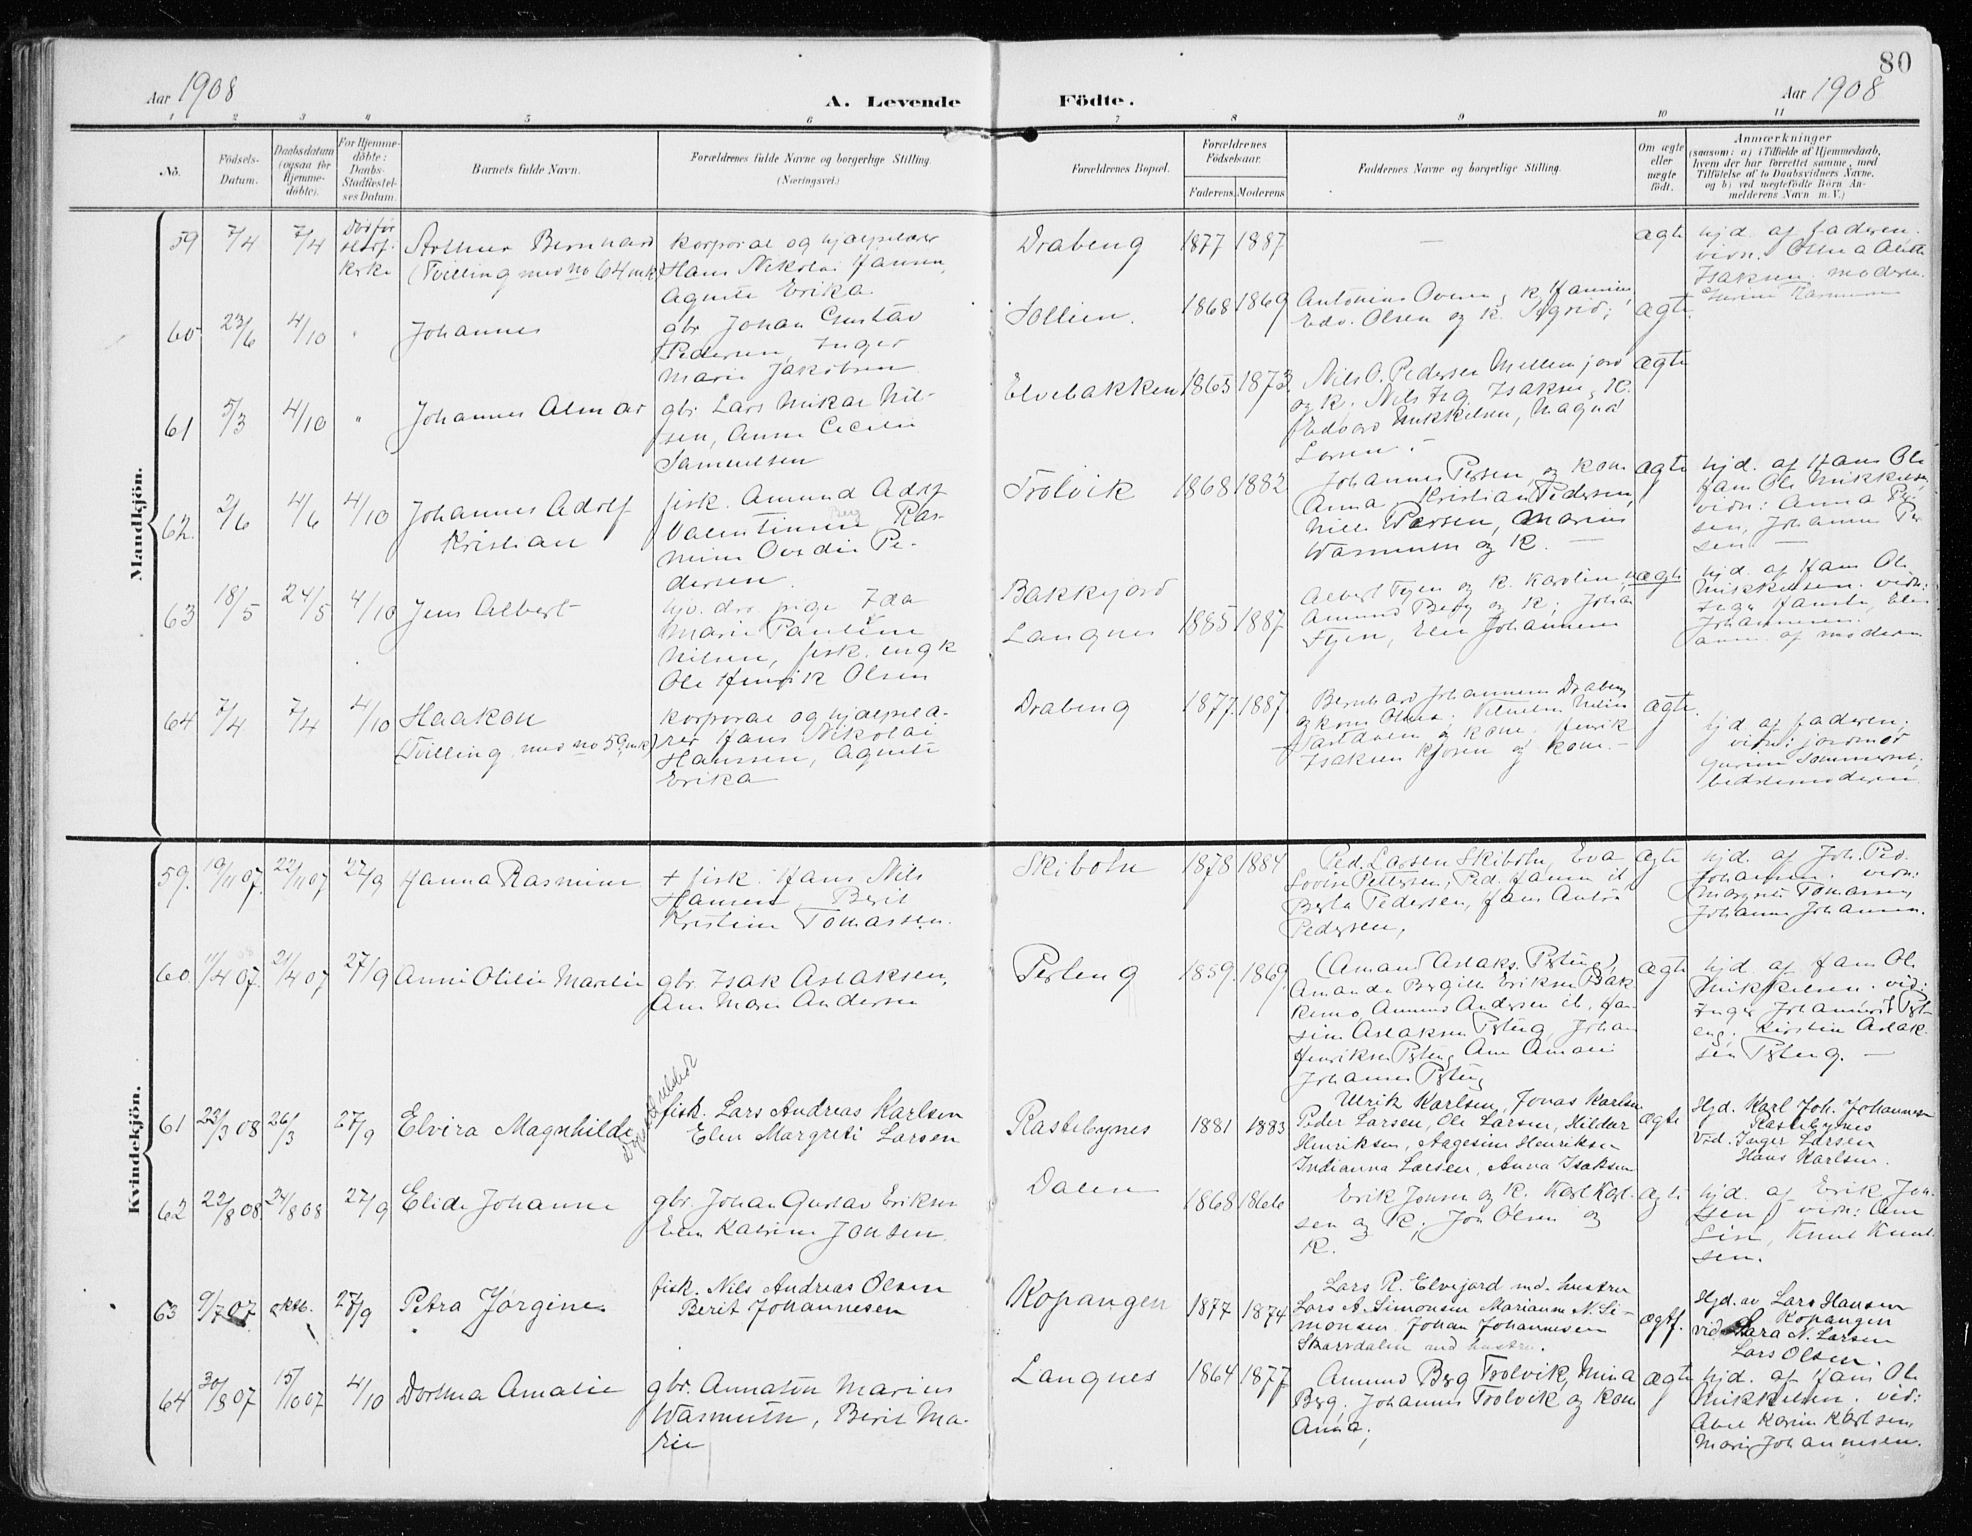 80
Aar 1908
A. Levende Födte.
Aar 1908
1 2 3 4 5 6 7 8 9 10 11
No.
Födsels-
Datum.
Daabsdatum
(ogsaa for
Hjemme-
döbte).
For Hjemme-
döbte:
Daabs-
Stadfæstel-
ses Datum.
Barnets fulde Navn.
Forældrenes fulde Navne og borgerlige Stilling.
(Næringsvei.)
Forældrenes Bopæl.
Forældrenes
Födselsaar.
Faderens. Moderens
Faddernes Navne og borgerlige Stilling.
Om ægte
eller
uægte
födt.
Anmærkninger
(saasom: a) i Tilfælde af Hjemmedaab,
hvem der har forrettet samme, med
Tilföielse af to Daabsvidners Navne,
og b) ved uægtefödte Börn An-
melderens Navn m. V.)
Mandkjön.
59 7/4 7/4 Död før
kirke
(Tvilling med no 64 mk)
korporal og hjælpelærer
Hans Nikolai Hansen,
Agnete Erika
Drabeng 1877 1887 —
ægte
hjd. af faderen.
Isaksen. moderen.
60 23/6 4/10 "
Johannes
gbr. Johan Gustav
Pedersen, Inger
Marie Jakobsen
Sollien. 1868 1869
Edv. Olsen og k. Sigrid;
ægte.
61 5/3 4/10 "
Johannes Almar
gbr. Lars Mikal Nil-
sen, Anne Cecilie
Samuelsen
Elvebakken 1865 1873
Nils O. Pedersen Mellemjord
og k. Nils Isaksen, k.
Edvard Mikkelsen, Magna
Larsen.
ægte
62. 2/6 4/6 4/10
Johannes Adolf
Kristian
fisk. Amund Adolf
Berg
Valentinsen, Ras-
mine Ovedie Pe-
dersen.
Trolvik 1868 1882
Johannes Persen og kone
Anna, Kristian Pedersen,
Nils Larsen, Marius
Wasmuth og k. —
ægte
hjd. af Hans Ole
Hans Ole Mikkelsen,
vidn: Anna Per-
sen, Johannes Per
sen —
63 18/5 24/5 4/10
Jens Albert
hjv. drr. pige Ida
Marie Pauline
Nilsen, fisk. ungk
Ole Henrik Olsen
Bakkejord
Langnes 1885 1887
Albert Fyen og k. Karoline,
Amund Berg og k; Johan
Fyen, Elen Johannesen
uægte
hjd. af Hans Ole
Mikkelsen. vidn:
Johannesen.
anm. af moderen
64 7/4 7/4 4/10
Haakon
(Tvilling med no 59 mk)
korporal og hjælpelæ-
rer Hans Nikolai
Hanssen, Agnete
Erika
Drabeng 1877. 1887.
Bernhard Johannesen Drabeng
og kone Olina; Vilhelm Nilsen
Isaksen Kjosen og kone. —
ægte.
hjd. af faderen.
vidn: jordmor
bedstemoderen
Kvindekjön.
59. 19/11 07. 22/11 07 27/9
Hanna Rasmine
+ fisk. Hans Nils
Hansen, Berit
Kristine Tomassen.
Skiboln 1878 1884
Ped. Larsen Skiboln, Eva
Lovise Pettersen, Ped. Hansen il,
Berta Pedersen, Hans Anton
Pedersen,
ægte
hjd. af Joh. Ped.
Johannesen. vidn:
Margrete Tomassen,
Johanne Johannesen.
60 11/4 07. 21/4 07 27/9
Anne Otilie Marelie
gbr. Isak Aslaksen,
Ane Marie Andersen
Perteng 1859. 1869.
(Amand Aslaks. Pgteng),
Amanda Bergitte Eriksen Bak
kemo, Amund Andersen ib, Han-
sine Aslaksen Pgteng, Johan
Henriksen Pgteng, Ane Amalie
Johannes Pgteng
ægte
hjd. af Hans Ol.
Mikkelsen. vid:
Inger Johannes Pgt-
eng, Kirstine Aslak-
sen Pgteng. —
61 23/3 08 26/3 27/9
Elvira Magnhilde
fisk. Lars Andreas Karlsen
Elen Margreti Larsen
Rastebynes 1881 1883
Ulrik Karlsen, Jonas Karlsen
Peder Larsen, Ole Larsen, Hildur
Henriksen, Aagesine Henriksen
Indianna Larsen, Anna Isaksen
ægte
Hjd. Karl Joh. Johannesen
Rastebynes
Vid. Inger Larsen
Hans Karlsen.
62 22/8 08 24/8 08 27/9
Elide Johanne
gbr. Johan Gustav Eriksen
Elen Katrine Jonsen.
Dalen 1868 1866
Erik Jonsen og k. Karl Karl-
sen og k, Jon Olsen og
k.
ægte
hjd. af Erik Jon-
sen, vidn: Ane
Lise, Knut Knut-
sen.
63 9/7 07 oktb. 27/9
Petra Jørgine
fisk. Nils Andreas Olsen
Berit Johannesen
Kopangen 1877 1874
Lars R. Elvejord md. hustru
Lars A. Simonsen Marianne N. Si-
monsen. Johan Johannesen
Skarsdalen md hustru.
ægtf.
Hjd. av Lars Hansen
Kopangen
vid Sara N. Larsen
Lars Olsen.
64 30/8 07 15/10 07 4/10
Dorthea Amalie
gbr. Annaton Marius
Wasmuth, Berit Ma-
rie
Langnes 1864 1877
Amund Berg Trolvik, Mina
Berg. Johannes Trolvik og kone
Anna,
ægte
hjd. af Hans Ol.
Mikkelsen. vid:
Abel Karine Karlsen,
Marie Johannesen.